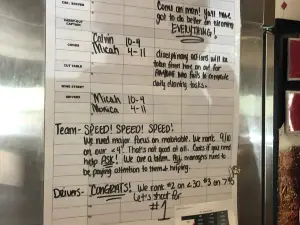 Come on man! You'll have
got to do better on cleaning
EVERYTHING!
CAPTAIN
Calvin 10-4
Micah 4-11
disciplinary actions will be
taken from here on out for
ANYONE who fails to complete
daily cleaning tasks.
CUT TABLE
DRIVERS
Micah 10-4
Monica 4-11
Team- SPEED! SPEED! SPEED!
We need major focus on makeable. We rank 9/10
on our <4'. That's not good at all. Guys if you need
help ASK! We are a team. All managers need to
be paying attention to them & helping.
Drivers- CONGRATS! We rank #2 on <30, #3 on 7-45
Let's shoot for
#1